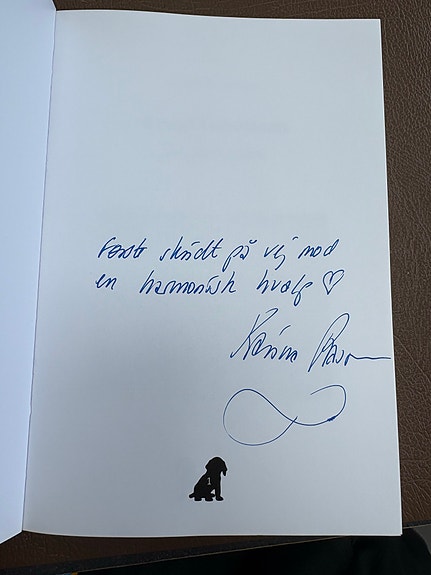 Første skridt på vej mod
en harmonisk hvalp ♡
1